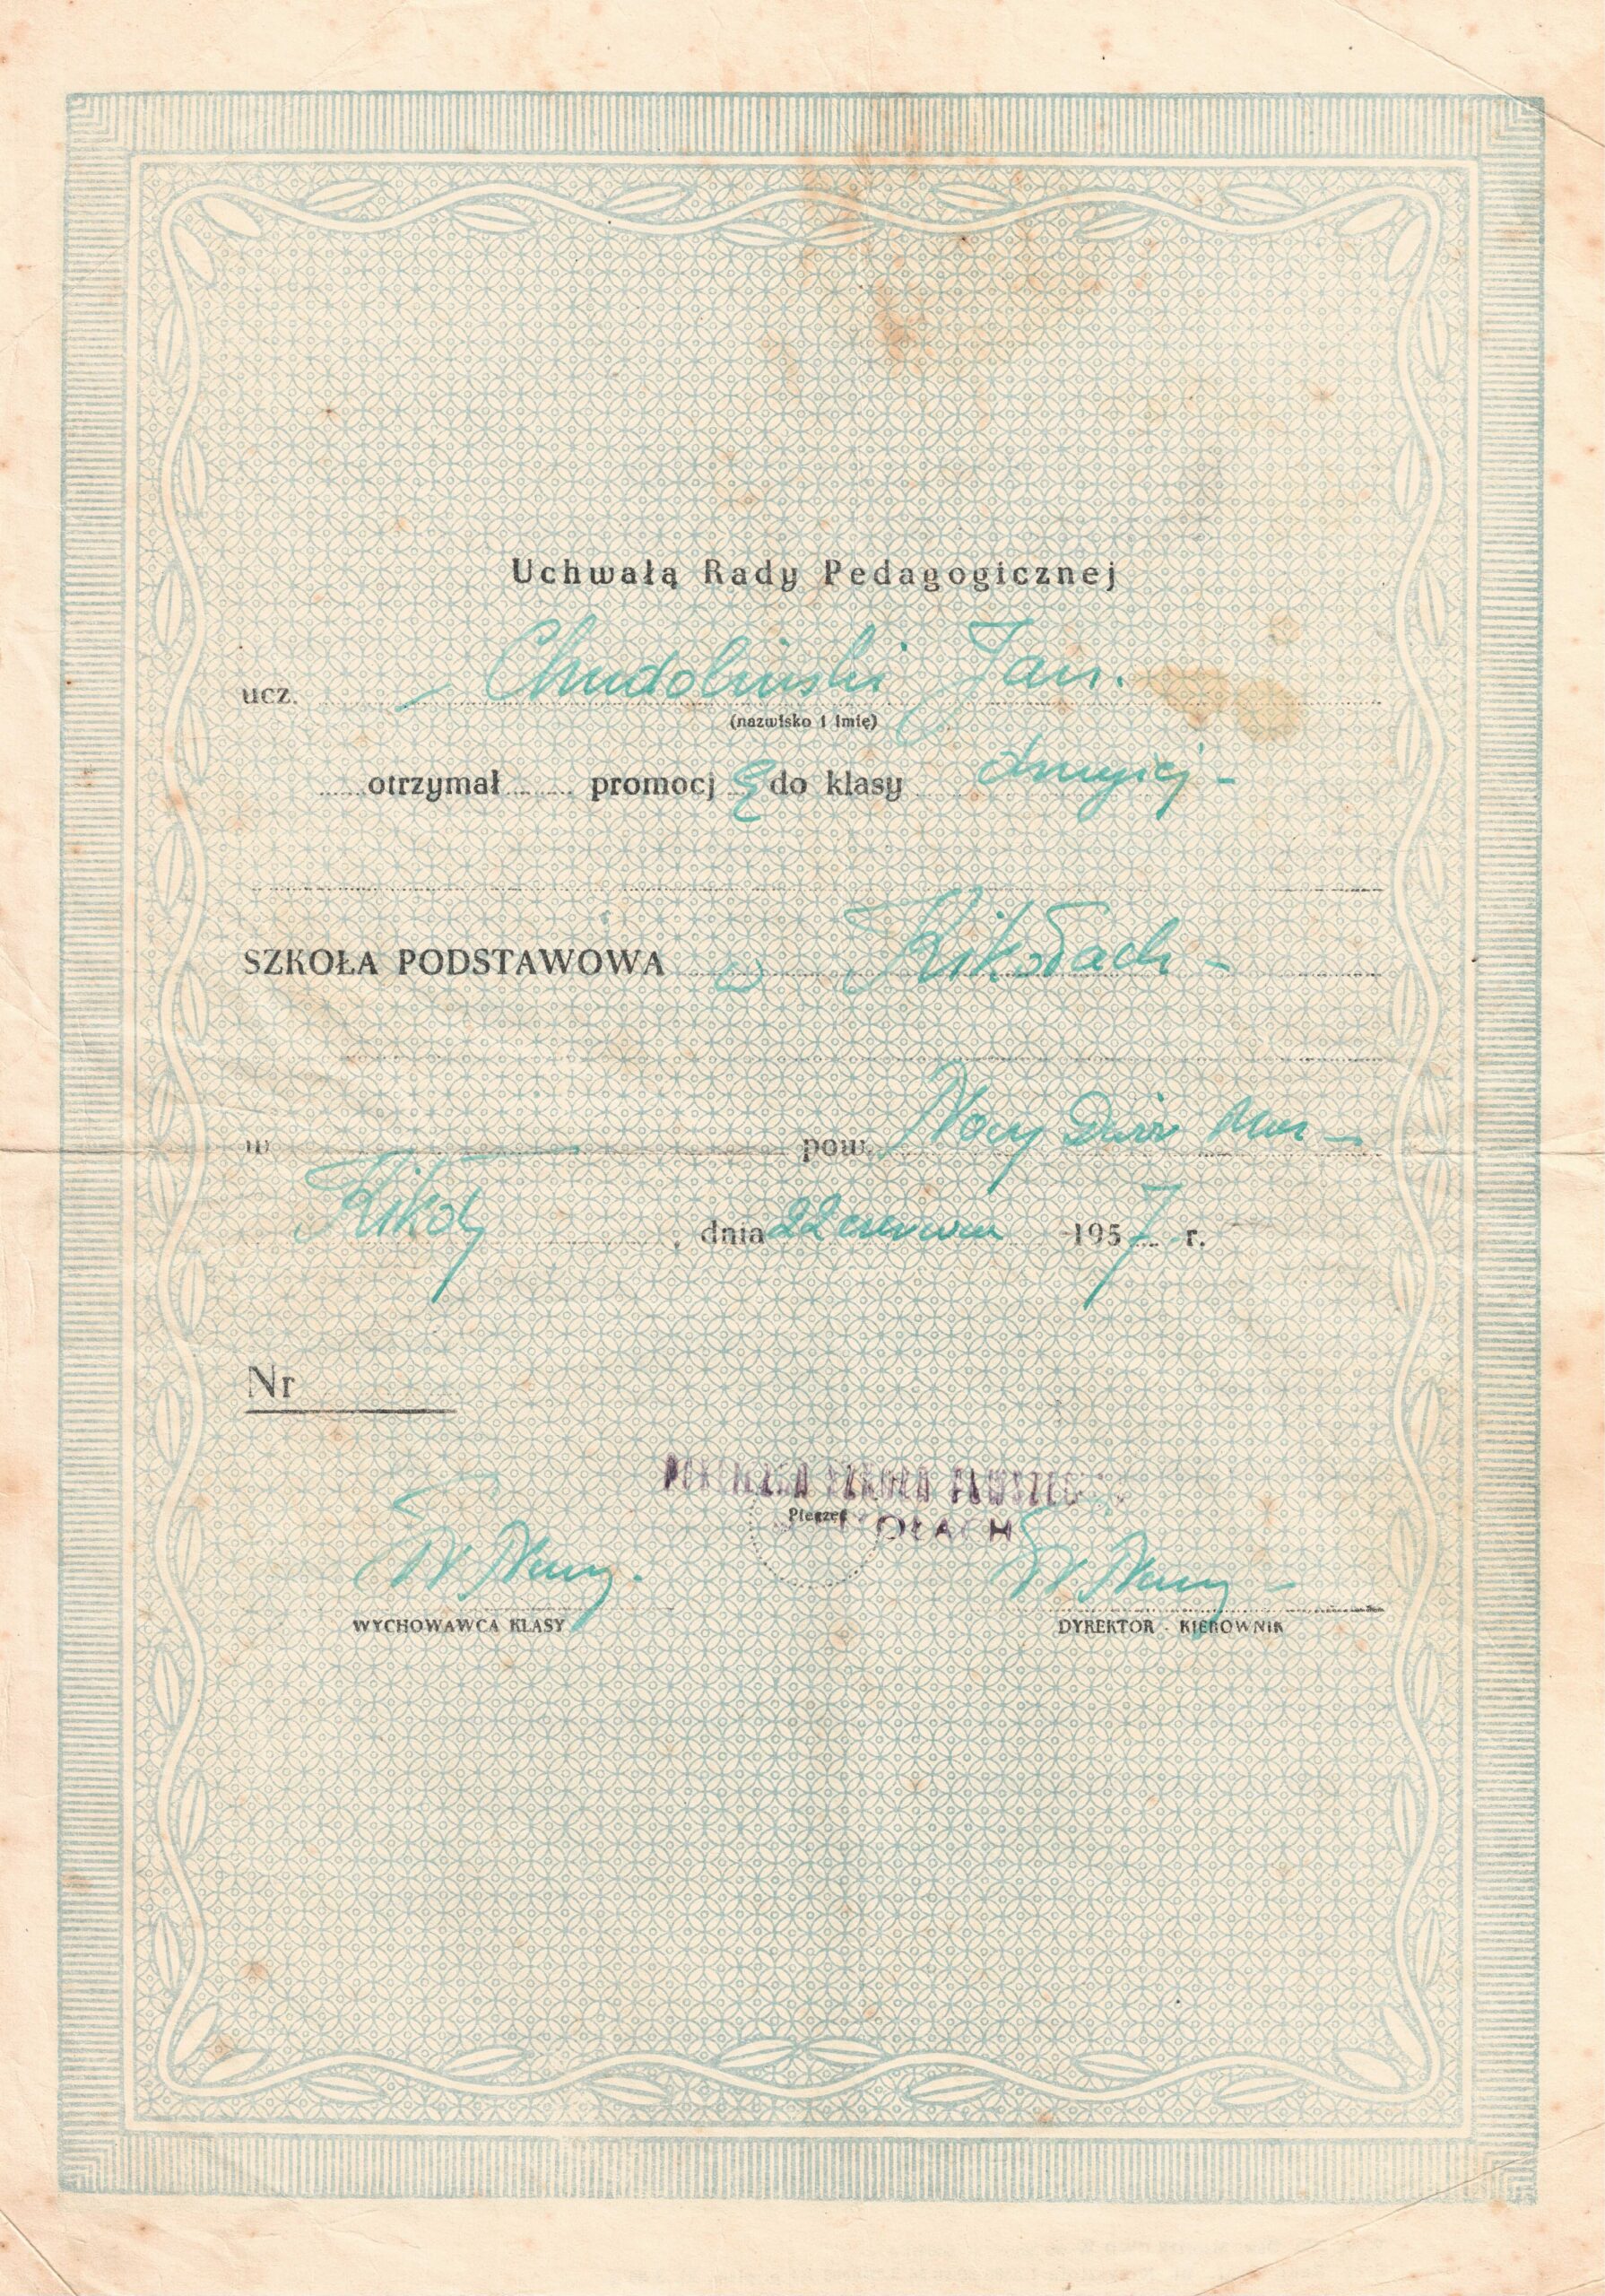 Uchwałą Rady Pedagogicznej
ucz. Chudoliński Jan.
(nazwisko i imię)
otrzymał promocj ę do klasy drugiej -
SZKOŁA PODSTAWOWA w Kikołach -
w pow. Nowy Dwór Maz -
Kikoły, dnia 22 czerwca 1957 r.
Nr
SZKOŁA
Pieczęć OŁACH
WYCHOWAWCA KLASY DYREKTOR - KIEROWNIK